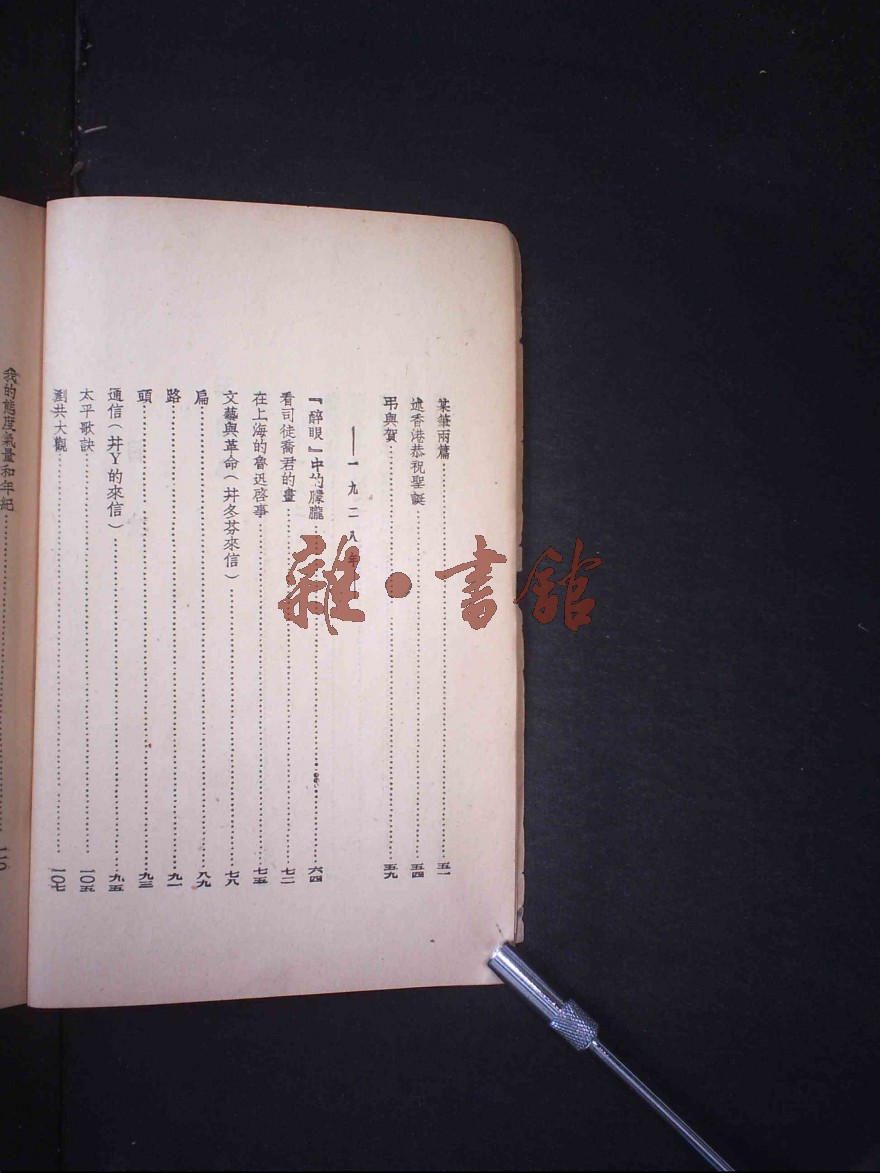 某筆兩篇……五一
述香港恭祝聖誕……五四
弔與賀……五九
——一九二八年——
『醉眼』中的朦朧……六四
看司徒喬君的畫……七二
在上海的魯迅啓事……七五
文藝與革命（幷冬芬來信）……七八
扁……八九
路……九一
頭……九三
通信（幷Y的來信）……九五
太平歌訣……一〇五
剷共大觀……一〇七
我的態度氣量和年紀……一一〇
雜·書館